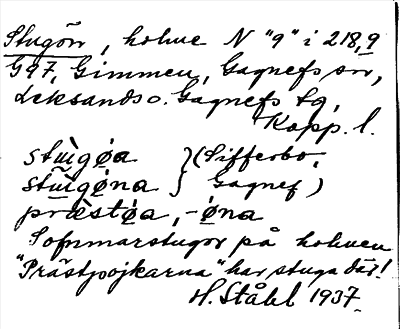 Stugön, holme N "9" i 218,9
G97, Gimmen, Gagnefs sn,
Leksands o. Gagnefs tg,
Kopp. l.
stùgøa } (Sifferbo,
stùgøna } Gagnef)
præstøa, -øna
Sommarstugor på holmen
"Prästpojkarna" har stuga där!
H. Ståhl 1937.